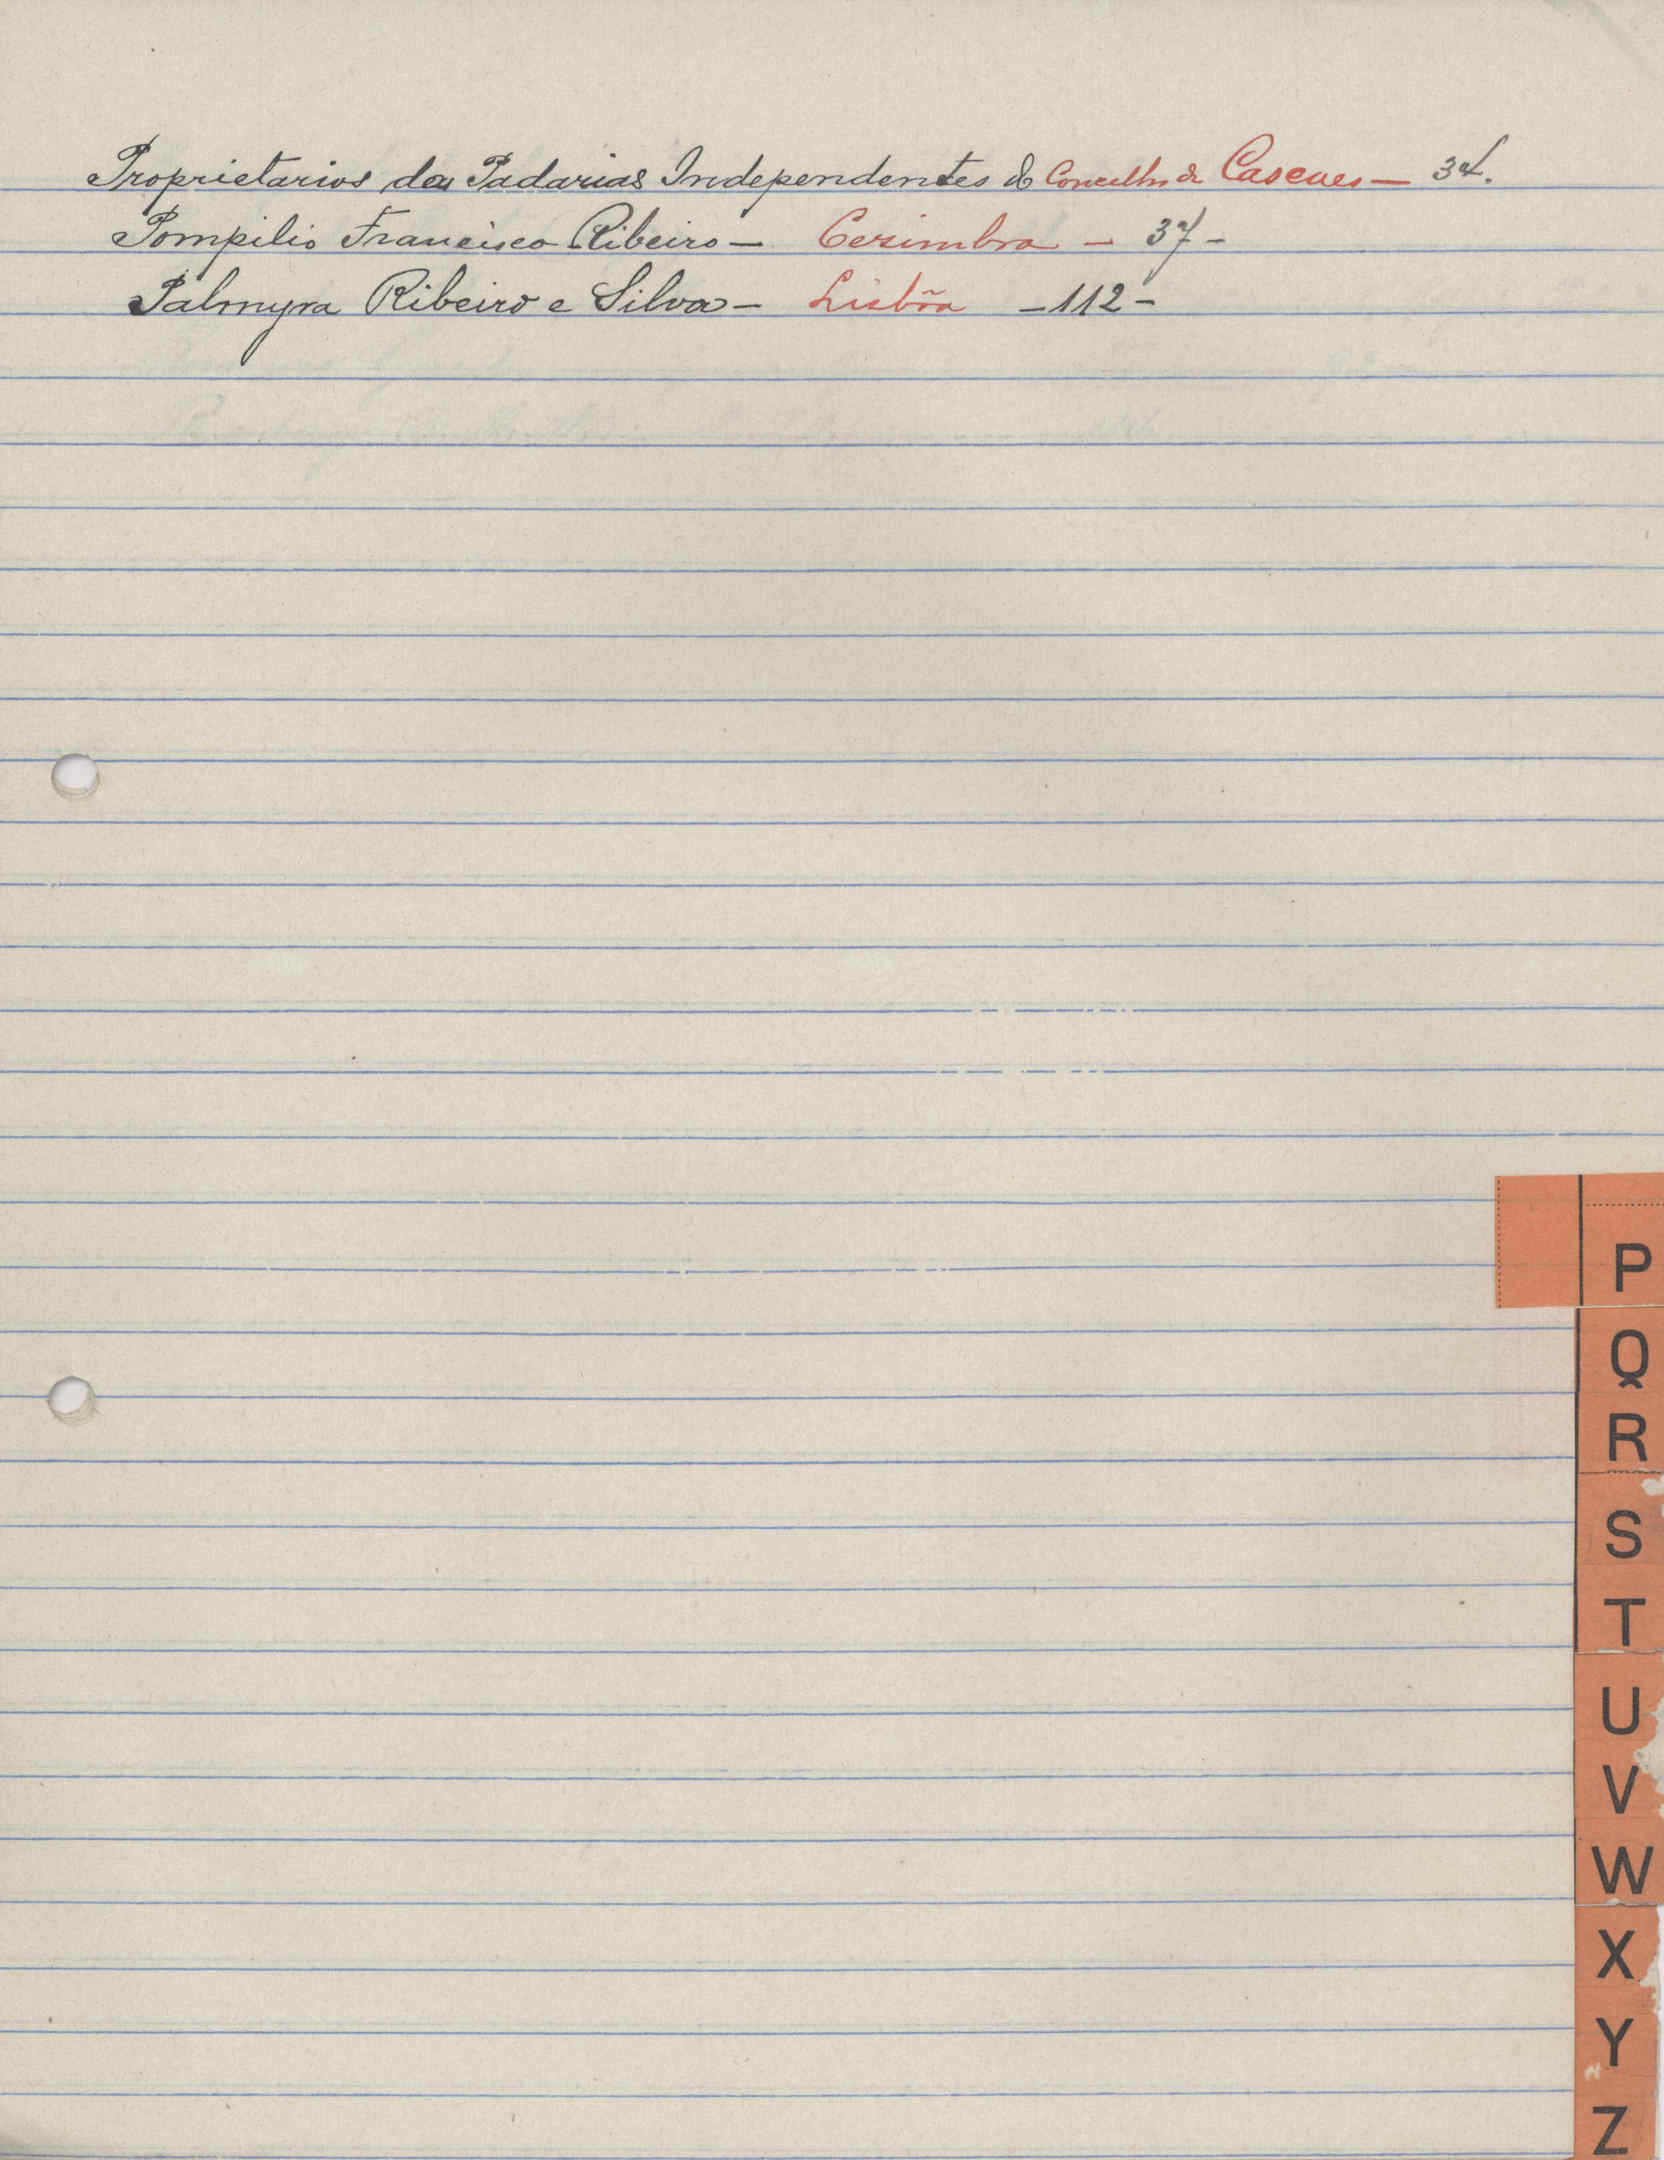 Proprietarios das Padarias Independentes do Concelho de Cascaes — 34.
Pompilio Francisco Ribeiro — Cezimbra — 37 —
Palmyra Ribeiro e Silva — Lisbõa — 112 —
P
Q
R
S
T
U
V
W
X
Y
Z